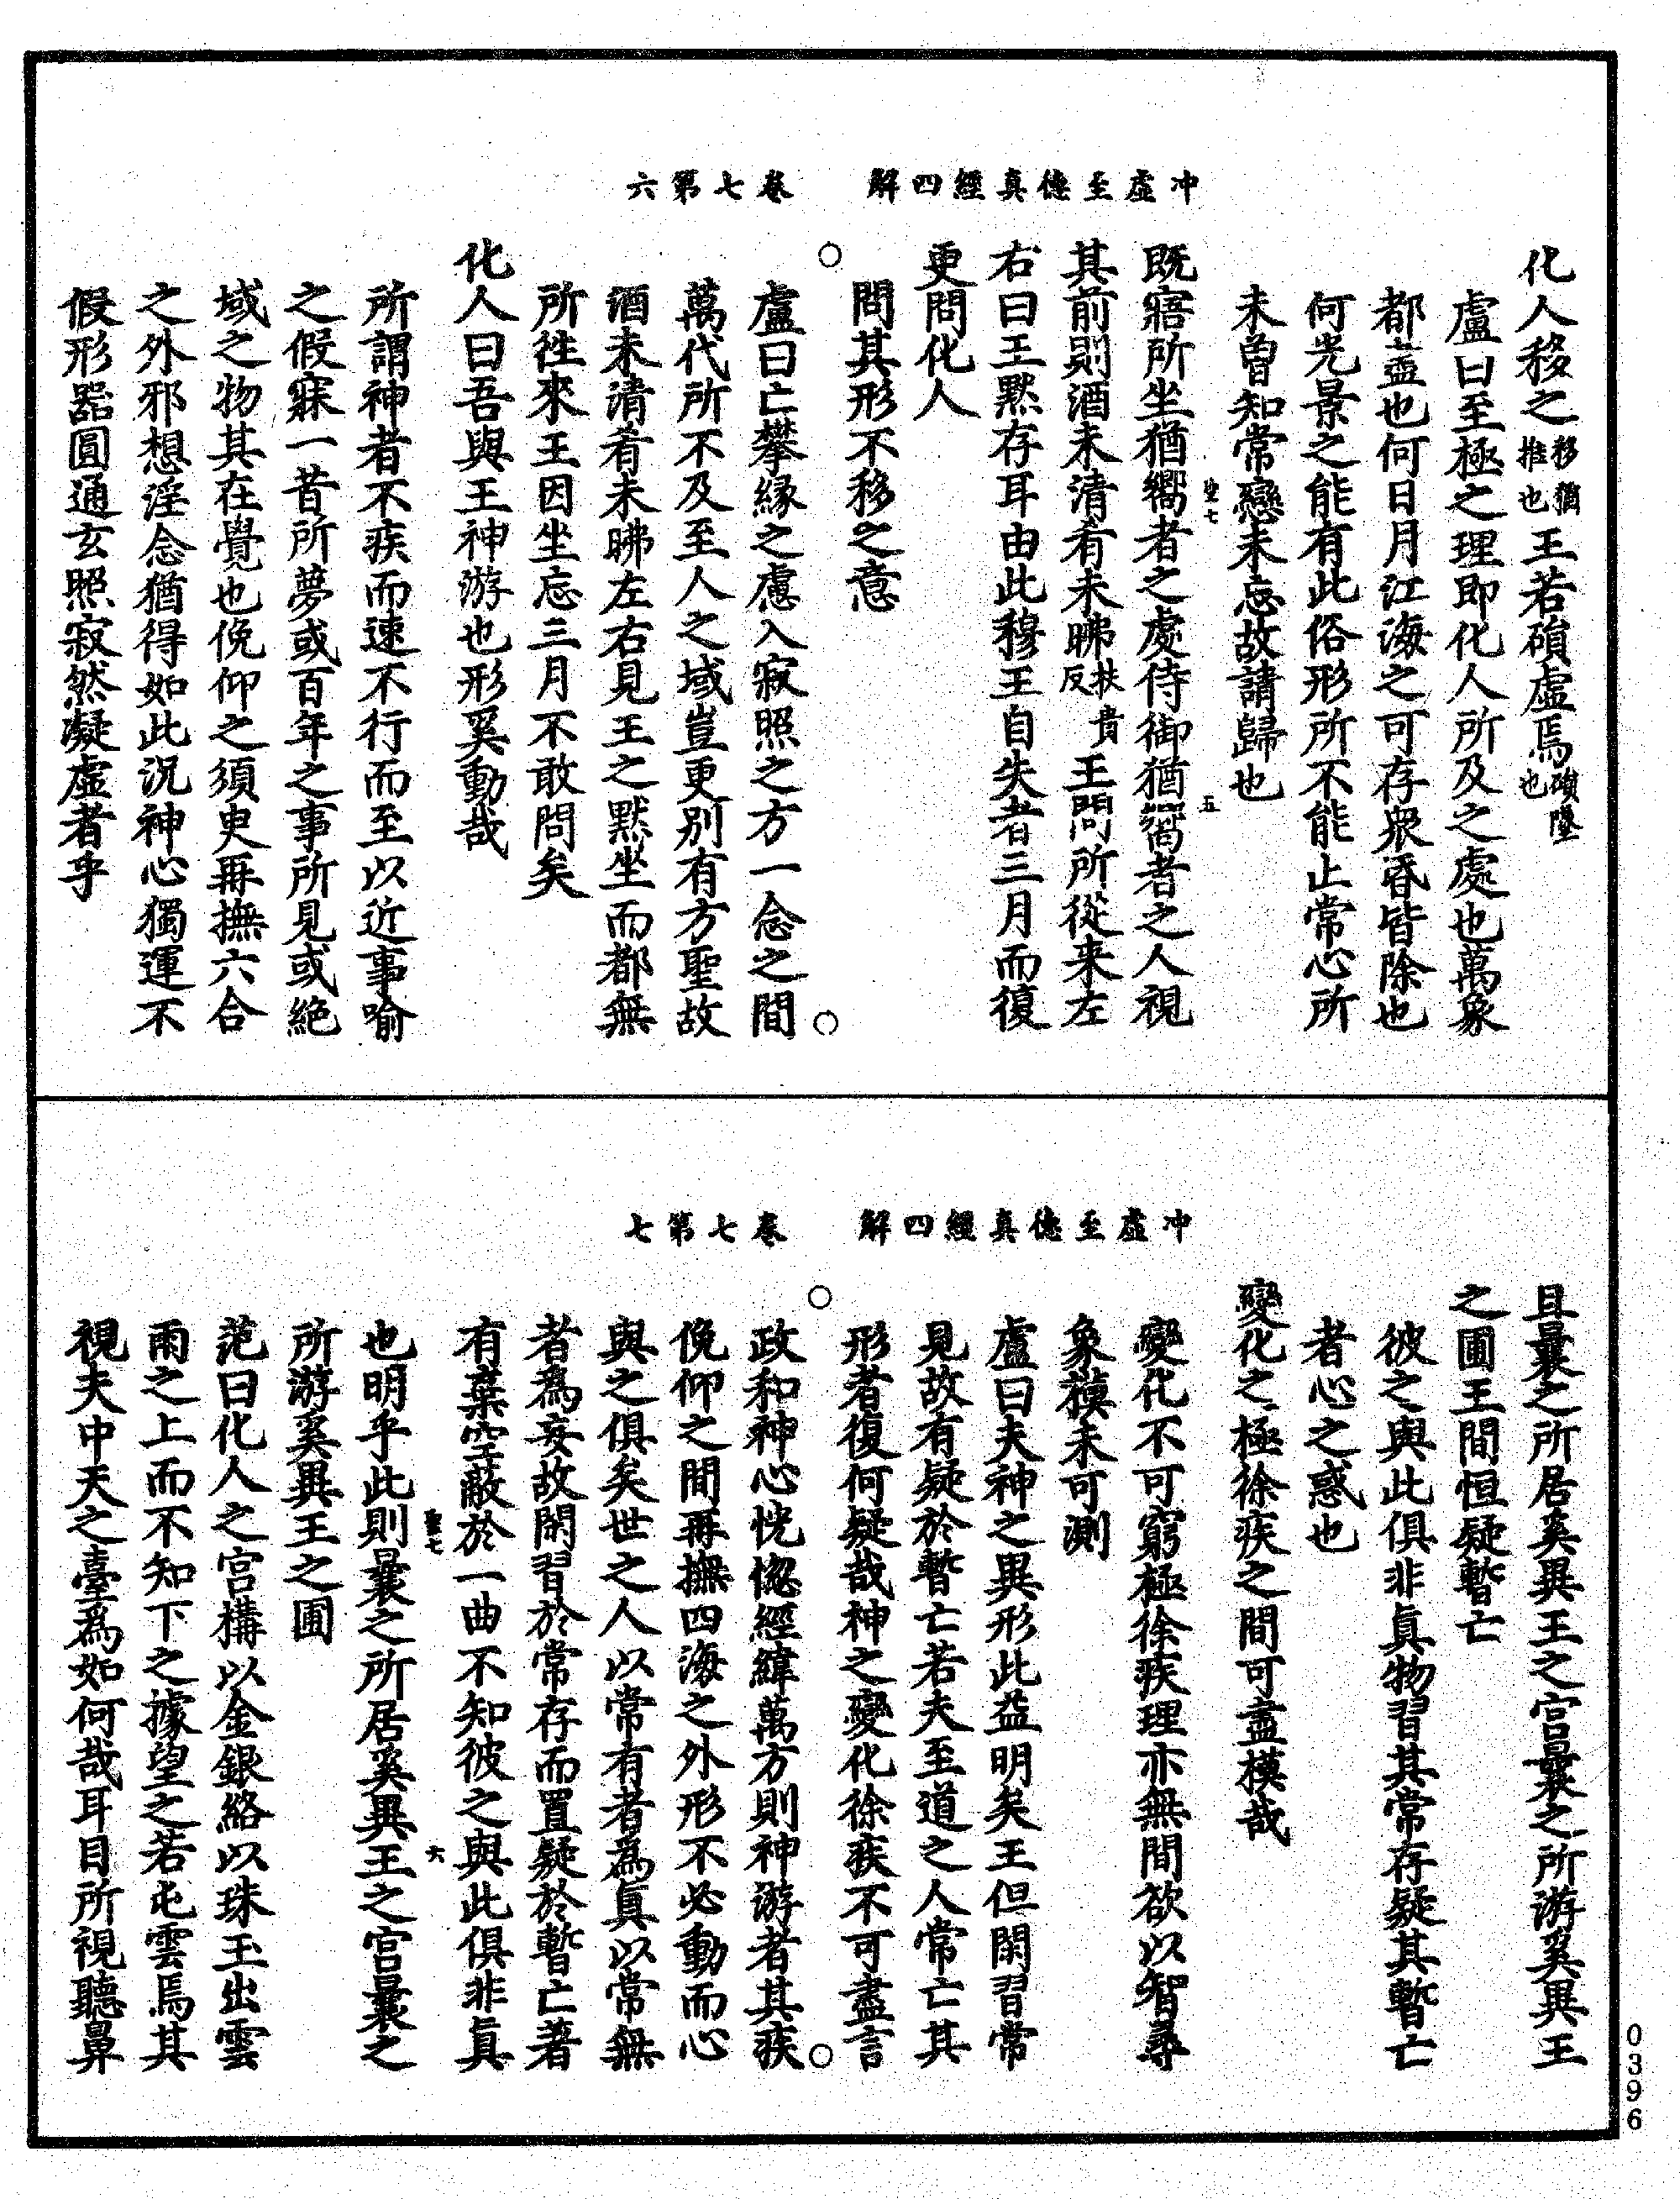 冲虛至德真經四解　卷七第六
化人移之移猶推也王若磒虛焉磒墜也
盧曰至極之理即化人所及之處也萬象
都盡也何日月江海之可存衆昏皆除也
何光景之能有此俗形所不能止常心所
未曽知常戀未忘故請歸也
既寤所坐猶嚮者之處侍御猶嚮者之人視
其前則酒未清肴未昲扶貴反王問所從来左
右曰王默存耳由此穆王自失者三月而復
更問化人
問其形不移之意
盧曰亡攀緣之慮入寂照之方一念之間
萬代所不及至人之域豈更别有方聖故
酒未清肴未昲左右見王之默坐而都無
所徃來王因坐忘三月不敢問矣
化人曰吾與王神游也形奚動哉
所謂神者不疾而速不行而至以近事喻
之假寐一昔所夢或百年之事所見或絶
域之物其在覺也俛仰之須臾再撫六合
之外邪想淫念猶得如此況神心獨運不
假形器圓通玄照寂然凝虛者乎
聖七　五
冲虛至德真經四解　卷七第七
且曩之所居奚異王之宫曩之所游奚異王
之圃王間恒疑暫亡
彼之與此俱非真物習其常存疑其暫亡
者心之惑也
變化之極徐疾之間可盡模哉
變化不可窮極徐疾理亦無間欲以智尋
象模未可測
盧曰夫神之異形此益明矣王但閑習常
見故有疑於暫亡若夫至道之人常亡其
形者復何疑哉神之變化徐疾不可盡言
政和神心恍惚經緯萬方則神游者其疾
俛仰之間再撫四海之外形不必動而心
與之俱矣世之人以常有者為真以常無
者為妄故閑習於常存而置疑於暫亡著
有棄空蔽於一曲不知彼之與此俱非真
也明乎此則曩之所居奚異王之宫曩之
所游奚異王之圃
范曰化人之宫構以金銀絡以珠玉出雲
雨之上而不知下之據望之若屯雲焉其
視夫中天之臺為如何哉耳目所視聽鼻
聖七　六
0396